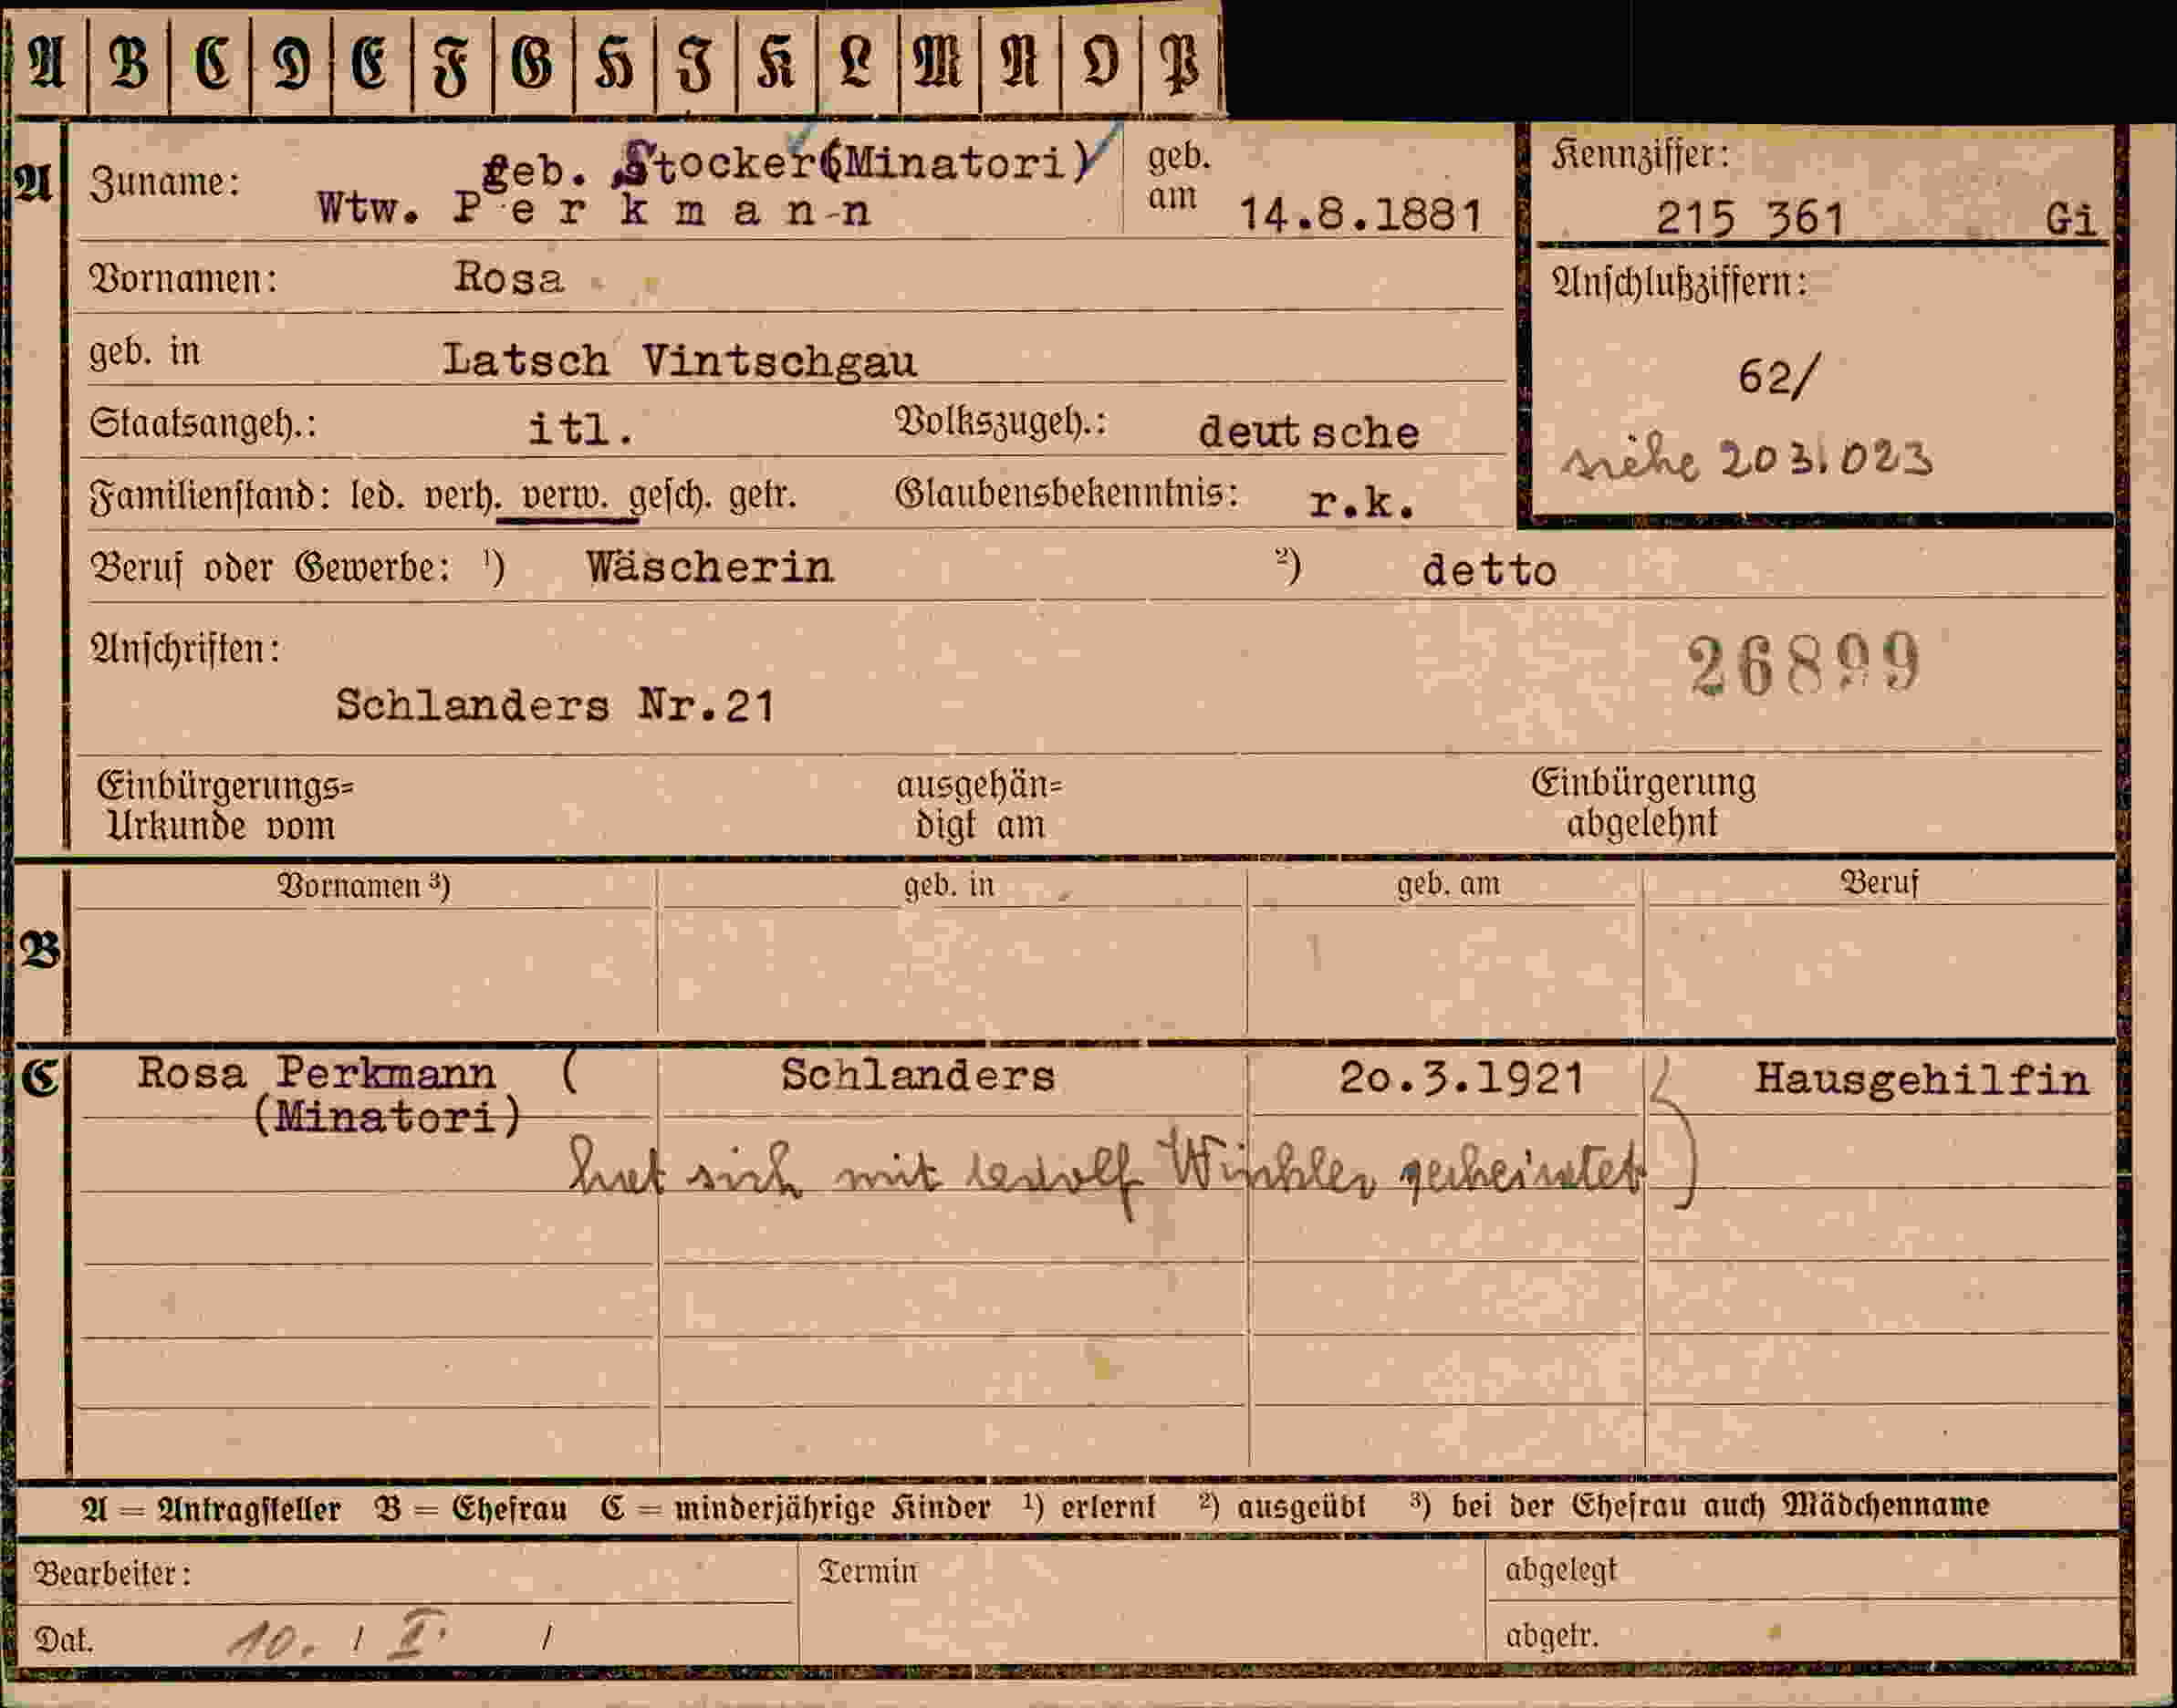 A B C D E F G H I K L M N O P
A
Zuname: geb. Stocker (Minatori)
Wtw. P e r k m a n n
geb. am 14.8.1881
Vornamen: Rosa
geb. in Latsch Vintschgau
Staatsangeh.: itl. Volkszugeh.: deutsche
Familienstand: led. verh. verw. gesch. getr. Glaubensbekenntnis: r.k.
Kennziffer:
215 361 Gi
Anschlußziffern:
62/
siehe 203.023
Beruf oder Gewerbe: ¹) Wäscherin ²) detto
Anschriften:
26899
Schlanders Nr.21
Einbürgerungs=
Urkunde vom
ausgehän=
digt am
Einbürgerung
abgelehnt
B
Vornamen ³) geb. in geb. am Beruf
C
Rosa Perkmann ( Schlanders 20.3.1921 Hausgehilfin
(Minatori)
hat sich mit Winkler )
A = Antragsteller B = Ehefrau C = minderjährige Kinder ¹) erlernt ²) ausgeübt ³) bei der Ehefrau auch Mädchenname
Bearbeiter: Termin abgelegt
Dat. 10. / I. / abgetr.